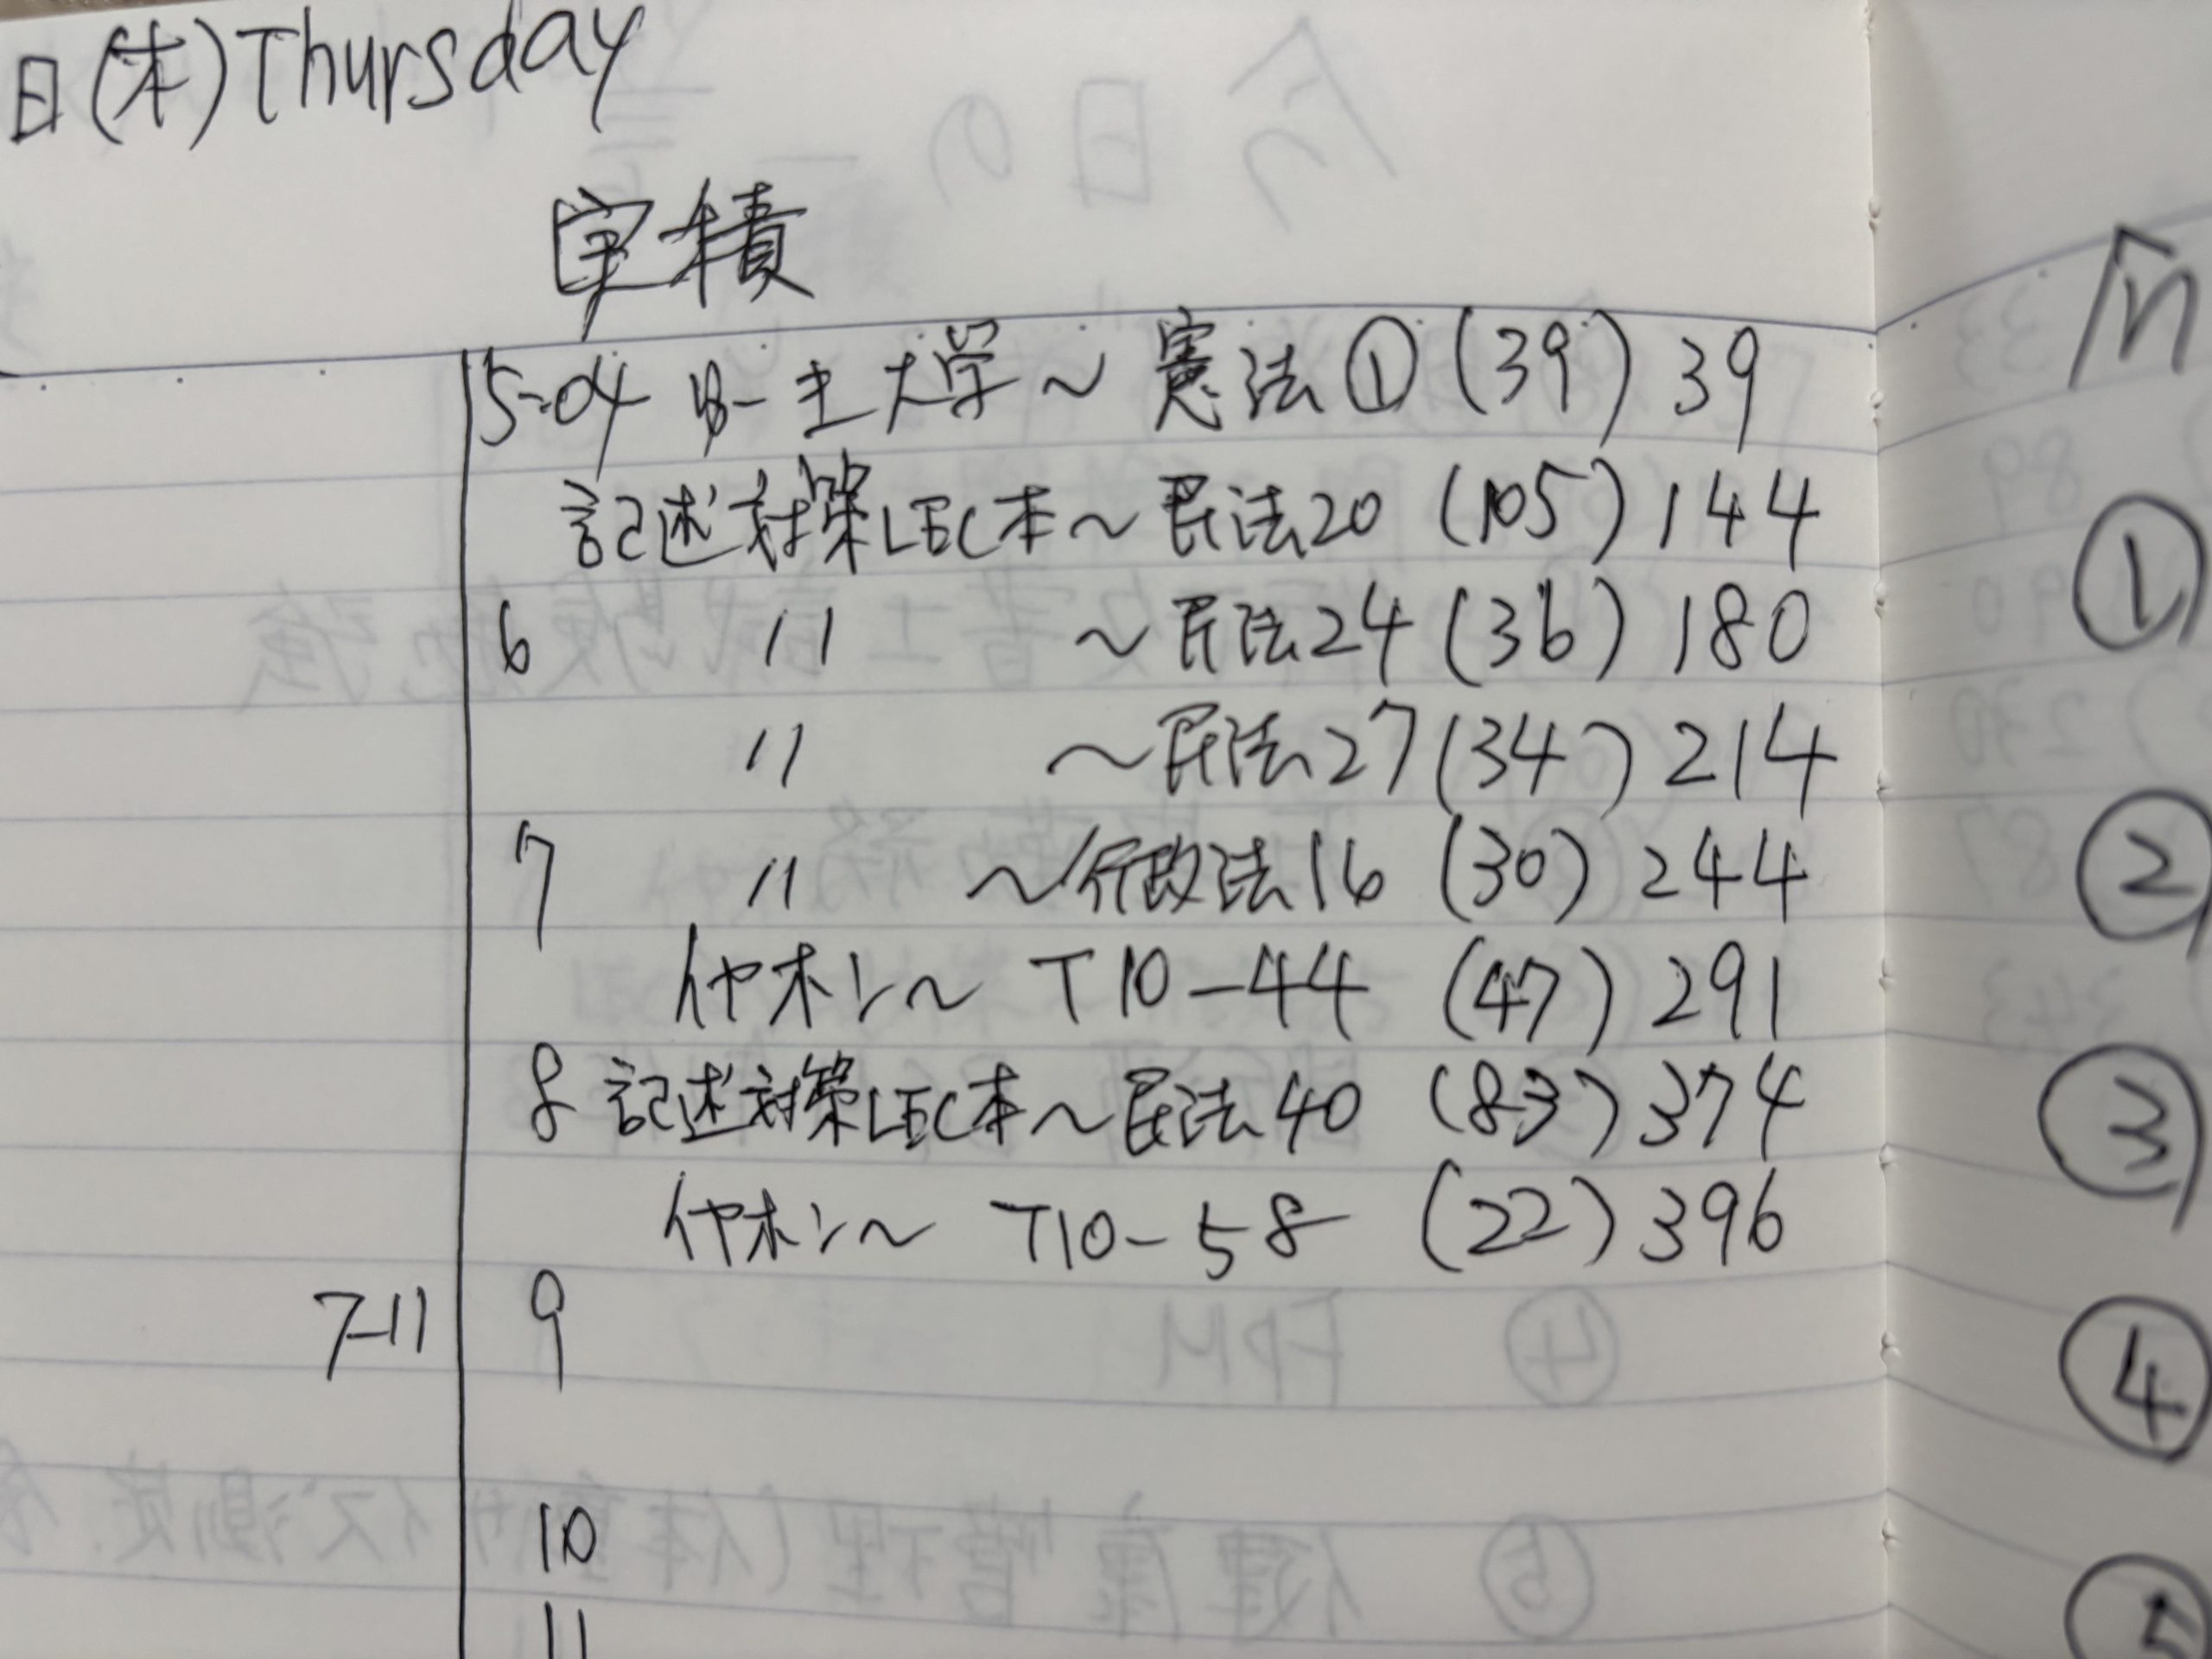 日(木)Thursday
実積
5-04 ゆーき大学～憲法①(39)39
記述対策LEC本～民法20(105)144
6 〃 ～民法24(36)180
〃 ～民法27(34)214
7 〃 ～行政法16(30)244
イヤホン～T10-44(47)291
8 記述対策LEC本～民法40(83)374
イヤホン～T10-58(22)396
7-11 9
10
11
①
②
③
④
⑤